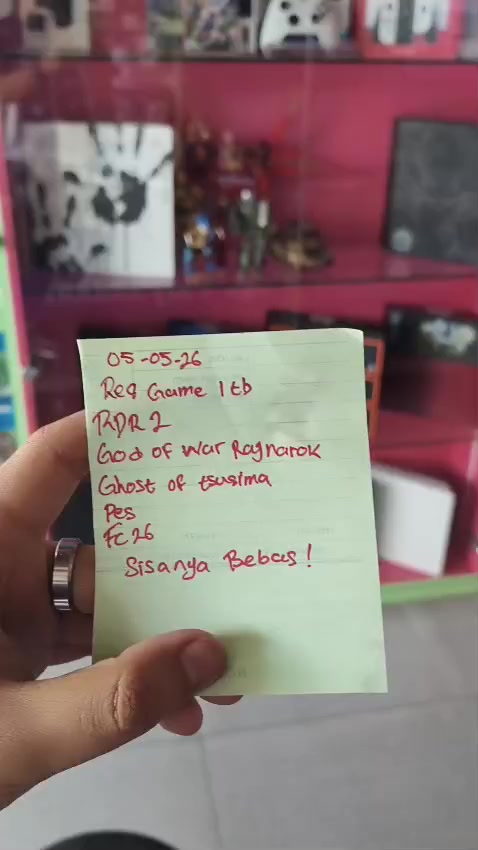 05-05-26
Req Game 1tb
RDR 2
God of War Ragnarok
Ghost of tsusima
Pes
FC 26
Sisanya Bebas!